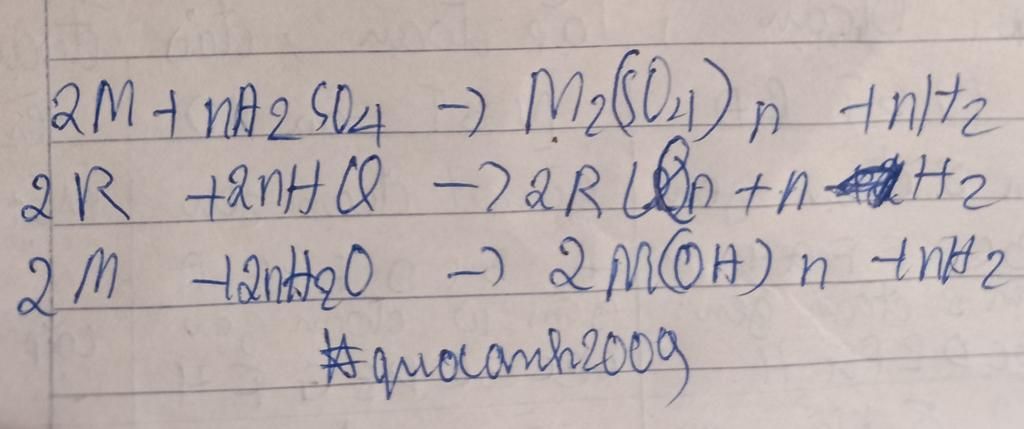 2M + nH2SO4 -> M2(SO4)n + nH2
2R + 2nHCl -> 2RCln + n H2
2M + 2nH2O -> 2M(OH)n + nH2
#quocanh2009